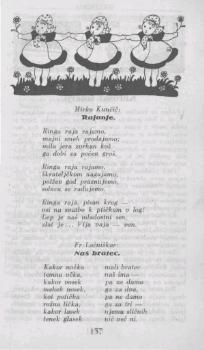 Mirko Kunčič:
Rajanje.
Ringa raja rajamo,
majni smeh prodajamo;
mila jera zarhan kol
ga dobi za počen groš.
Ringa raja rajamo,
škrateljčkom nagajamo,
polžev god praznujemo,
solncu se radujemo.
Ringa raja, pisan krog —
vsi na svatbo k ptičkam v log!
Lep je naš mladostni sen,
zlat je... Vija vaja — ven.
Fr. Ločniškar:
Naš bratec.
Kakor mačka
ima uška,
kakor vosek
mehek nosek,
kot potička
rožna lička,
kakor lasek
tenek glasek
naš bratec
naš ima —
pa ne damo
ga za dva,
pa ne damo
ga za tri —
njemu sličnih
nič več ni.
157